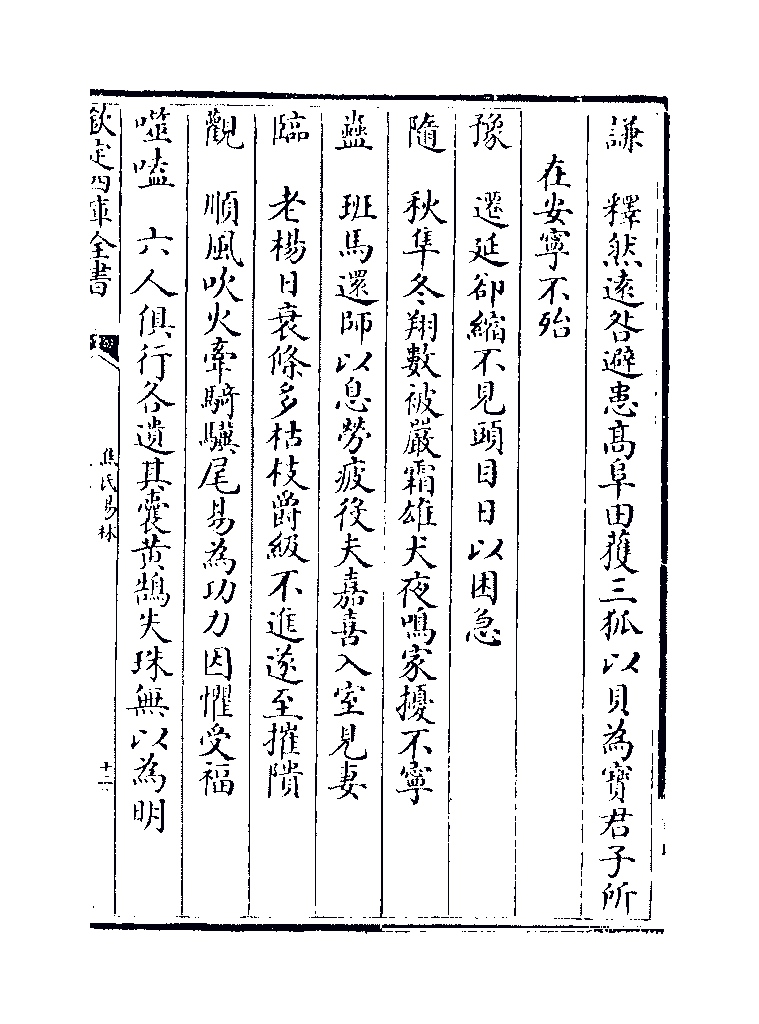 謙　釋然遠咎避患高阜田獲三狐以貝為寳君子所
在安寧不殆
豫　遷延卻縮不見頭目日以困急
隨　秋隼冬翔數被嚴霜雄犬夜鳴家擾不寧
蠱　班馬還師以息勞疲役夫嘉喜入室見妻
臨　老楊日衰條多枯枝爵級不進遂至摧隤
觀　順風吹火牽騎驥尾易為功力因懼受福
噬嗑　六人俱行各遺其囊黄鵠失珠無以為明
欽定四庫全書
焦氏易林
十二